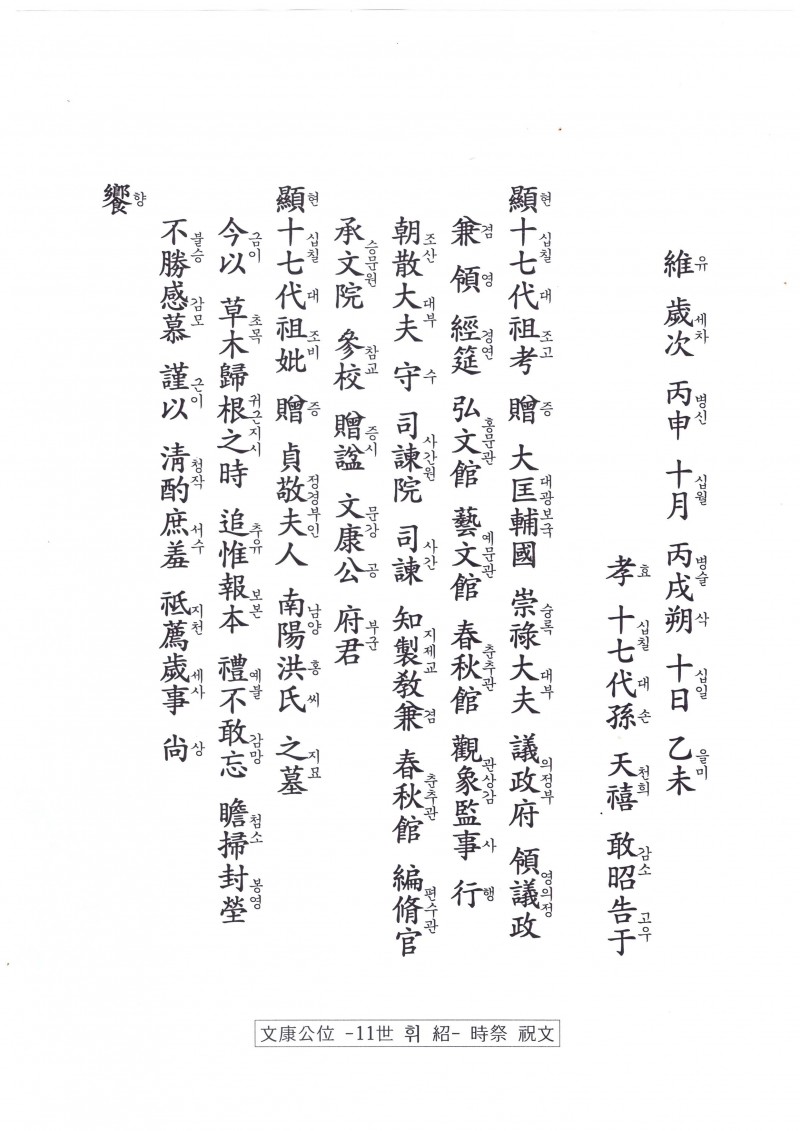 維 歲次 丙申 十月 丙戌朔 十日 乙未
유 세차 병신 십월 병술 삭 십일 을미
孝 十七代孫 天禧 敢昭告于
효 십칠 대 손 천희 감소 고우
顯十七代祖考 贈 大匡輔國 崇祿大夫 議政府 領議政
현 십칠 대 조고 증 대광보국 숭록 대부 의정부 영의정
兼 領 經筵 弘文館 藝文館 春秋館 觀象監事 行
겸 영 경연 홍문관 예문관 춘추관 관상감 사 행
朝散大夫 守 司諫院 司諫 知製敎兼 春秋館 編脩官
조산 대부 수 사간원 사간 지제교 겸 춘추관 편수관
承文院 參校 贈諡 文康公 府君
승문원 참교 증시 문강 공 부군
顯十七代祖妣 贈 貞敬夫人 南陽洪氏 之墓
현 십칠 대 조비 증 정경부인 남양 홍 씨 지묘
今以 草木歸根之時 追惟報本 禮不敢忘 瞻掃封塋
금이 초목 귀근지시 추유 보본 예불 감망 첨소 봉영
不勝感慕 謹以 淸酌庶羞 祗薦歲事 尙
불승 감모 근이 청작 서수 지천 세사 상
饗
향
文康公位 -11世 휘 紹- 時祭 祝文